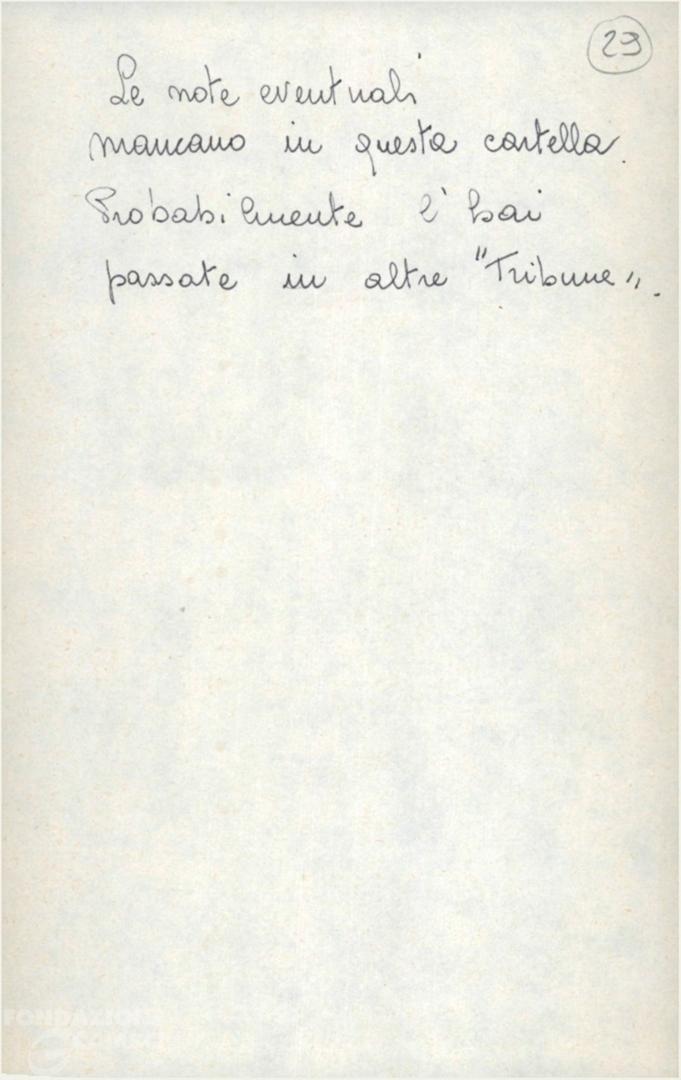 29
Le note eventuali
mancano in questa cartella.
Probabilmente l'hai
passate in altre "Tribune".
FONDAZIONE